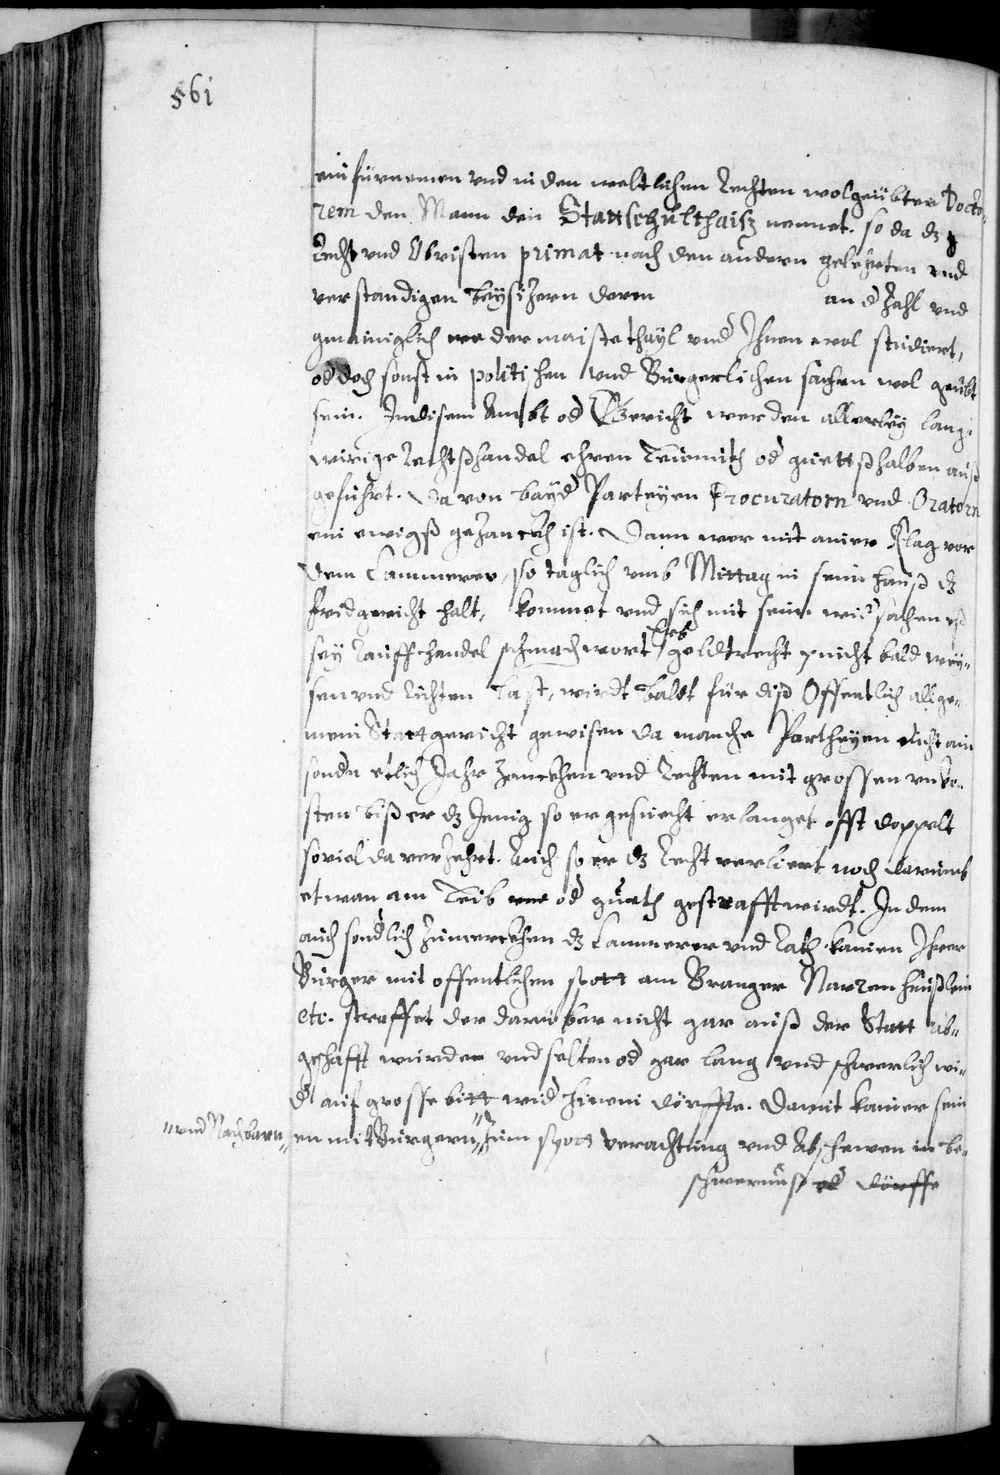 561
ein fürnemen vnd in den weltlichen Rechten wolgeübten Docto-
rem den Mann den Stattschulthaisz nennet. so da dz
Recht vnd Obristen primat nach den andern gelehrten vnd
verstandigen beysizern deren an d Zahl vnd
gmainiglich der maiste thayl vnd Ihnen wol studiert,
od doch sonst in politischen vnd Burgerlichen sachen wol geübt
sein. In disem Ambt od Gericht werden allerley lang-
wirige Rechtßhandel ehren od guettß halben auß
geführt. Da von bayd Parteyen Procuratorn vnd Oratorn
ein ewigß gezanckh ist. Dann wer mit ainer Klag vor
dem Cammerer, so taglich vmb Mittag in seim hauß dz
fridgericht halt, kommet vnd sich mit seim widsachen eß
sey Rauffhandel schmachwort geldtrecht nicht bald wey-
sen vnd Richten last, wirdt baldt für diß Offentlich allge-
mein Stattgericht gewisen da manche Partheyen nicht ain
sondn etlich Jahr zanckhen vnd Rechten mit grossen vnko-
sten biß er dz Jenig so er gesuecht erlanget offt doppelt
soviel da verzehrt. Auch so er dz Recht verliert noch darumb
etwan am Leib od gueth gestrafft wirdt. In dem
auch sondlich zumerckhen dz Cammerer vnd Rath kainen Ihrer
Burger mit offentlichen spott am Branger Narren heußlein
etc. straffet der darüber nicht gar auß der Statt ab-
geschafft wurde vnd selten od gar lang vnd schwerlich wi-
d auf grosse bitt wid hinein dörffte. Damit kainer sein
"vnd Nachbarn"
en mit Burgern" zum spott verachtung vnd Abschewen in be-
schwernuß od dörffe